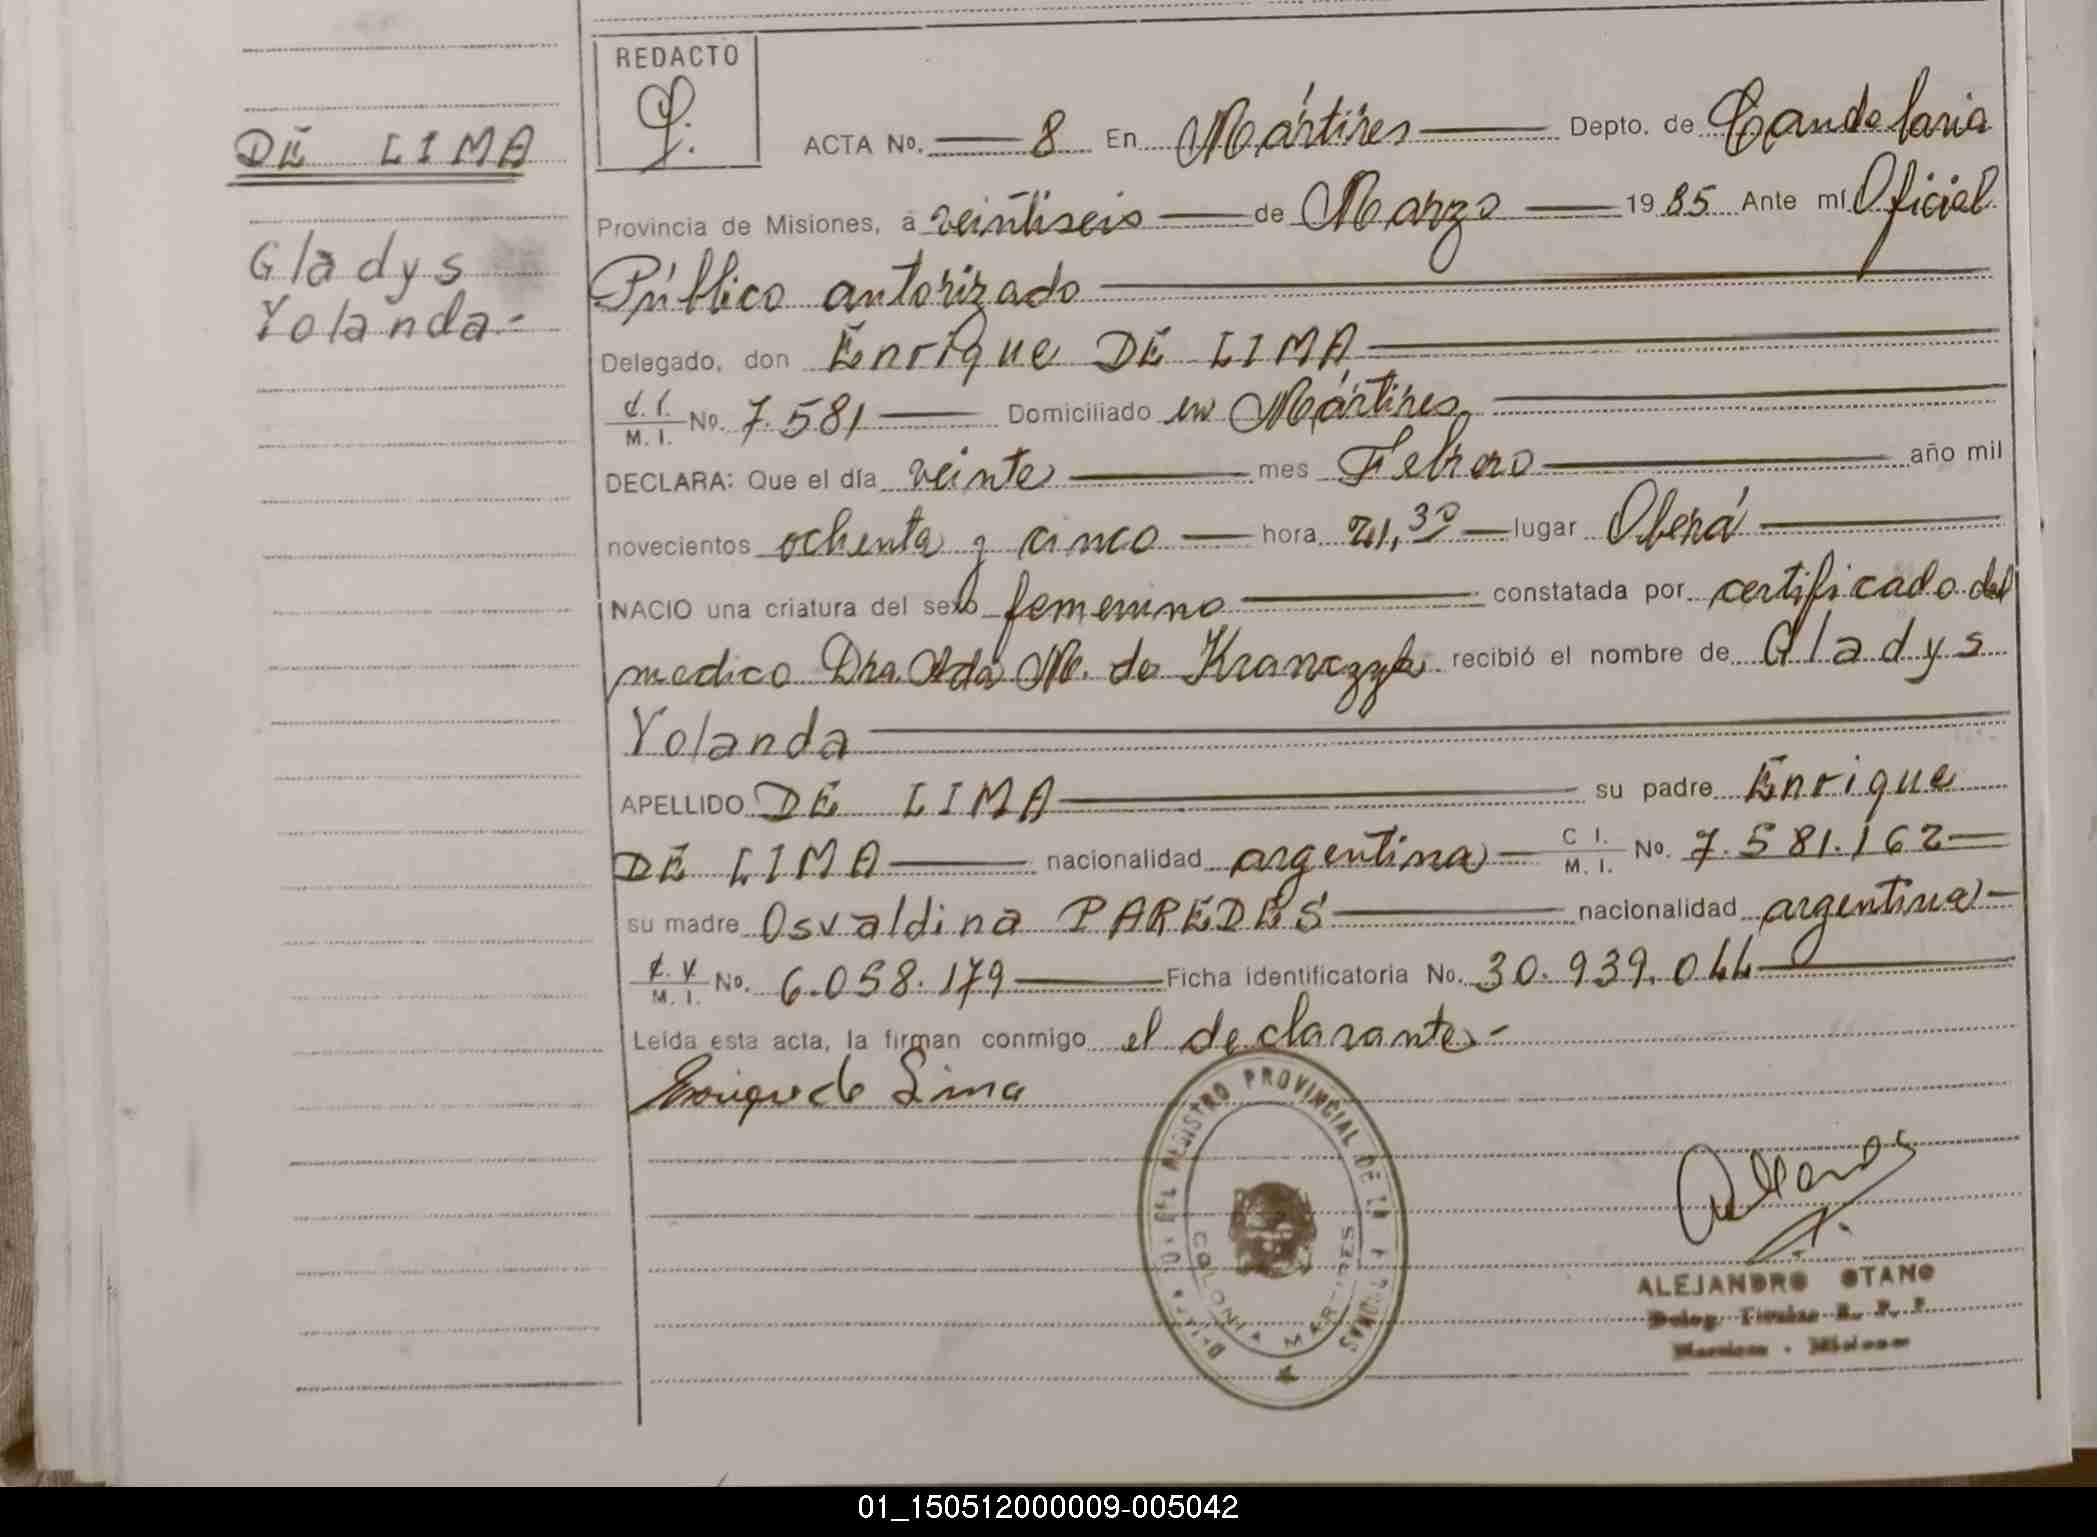 REDACTO
DE LIMA
Gladys
Yolanda.-
ACTA No. 8 En Mártires Depto. de Candelaria
Provincia de Misiones, a veintiseis de Marzo 1985 Ante mí Oficial
Público autorizado
Delegado, don Enrique DE LIMA
C. I. M. I. No. 7.581 Domiciliado en Mártires
DECLARA: Que el día veinte mes Febrero año mil
novecientos ochenta y cinco hora 21,30 lugar Oberá
NACIO una criatura del sexo femenino constatada por certificado del
medico Dra. Ada M. de recibió el nombre de Gladys
Yolanda
APELLIDO DE LIMA su padre Enrique
DE LIMA nacionalidad argentina C I. M. I. No. 7.581.162
su madre Osvaldina PAREDES nacionalidad argentina
M. I. No. 6.058.179 Ficha identificatoria No. 30.939.044
Leída esta acta, la firman conmigo el declarante.-
Enrique de Lima
REGISTRO PROVINCIAL DE LAS PERSONAS
COLONIA MARTIRES
ALEJANDRO OTANO
01_150512000009-005042